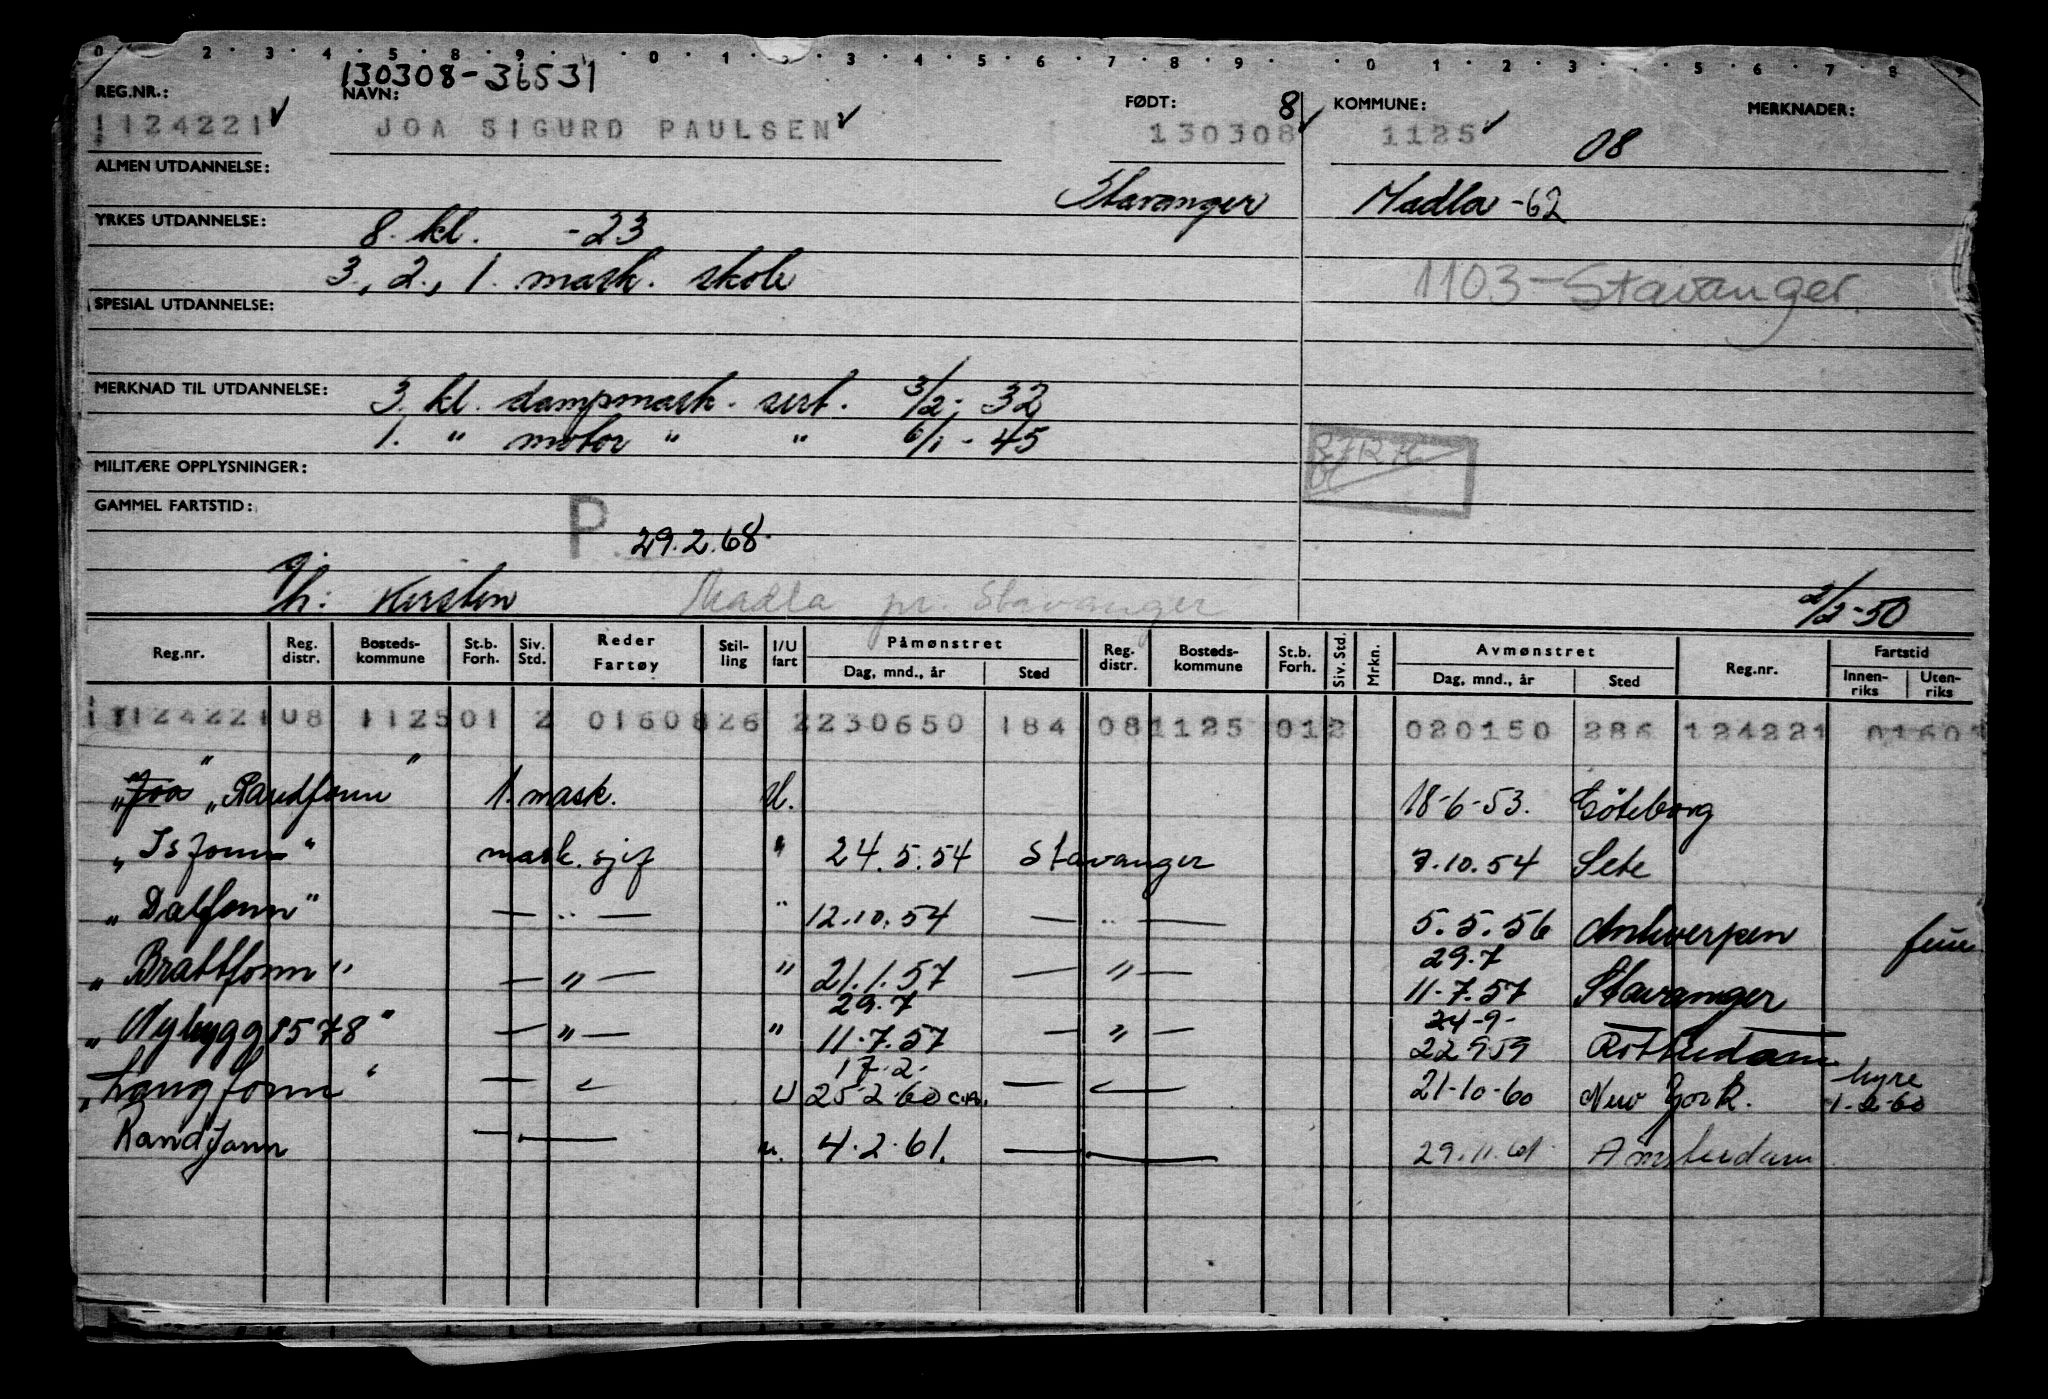 0 2 3 4 5 8 9 0 1 2 3 4 5 6 7 8 9 0 1 2 3 5 6 7 8
130308-36531
REG.NR.: NAVN: FØDT: 8 KOMMUNE: MERKNADER:
1124221 ✓ JOA SIGURD PAULSEN ✓ 130308 ✓ 1125 ✓ 08
ALMEN UTDANNELSE:
Stavanger Madla -62
YRKES UTDANNELSE: 8. kl. -23
3., 2., 1. mask. skole 1103-Stavanger
SPESIAL UTDANNELSE:
MERKNAD TIL UTDANNELSE: 3. kl. dampmask. sert. 3/2- 32
1. " motor " " 6/1 - 45
MILITÆRE OPPLYSNINGER:
GAMMEL FARTSTID: P 29.2.68.
gh: Kirsten Madla pr. Stavanger 2/2-50
Reg.nr. Reg. distr. Bosteds-kommune St.b. Forh. Siv. Std. Reder Fartøy Stil-ling I/U fart Påmønstret Dag, mnd., år Sted Reg. distr. Bosteds-kommune St.b. Forh. Siv. Std. Mrkn. Avmønstret Dag, mnd., år Sted Reg.nr. Fartstid Innen-riks Uten-riks
1124221 08 1125 01 2 0160826 2 230650 184 08 1125 01 2 020150 286 124221 01601
" "
"Joa "Randfonn" 1. mask. U. 18-6-53. Göteborg
"Isfonn" mask. sjef " 24.5.54 Stavanger 7.10.54 Sete
"Dalfonn" — " — " 12.10.54 — " — 5.5.56 Antwerpen
29.7
"Brattfonn" — " — " 21.1.57 — " — 11-7.57 Stavanger
29.7 24-9-
"Nybygg 8578" — " — " 11.7.57 — " — 22959 Rotterdam
17.2. hyre
"Langfonn" — " — U 25-2-60 — " — 21-10-60 New York. 1-2-60
Randfonn — — u. 4.2.61. — — 29.11.61. Amsterdam